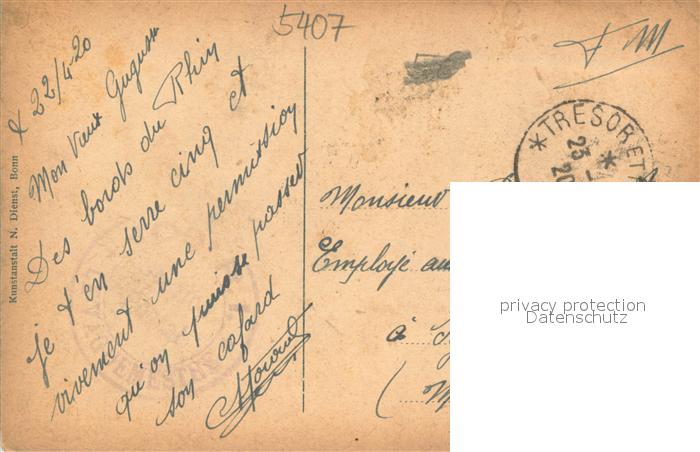 5407
F M
le 22/4-20
Mon Vieux Gugusse
Des bords du Rhin
je t'en serre cinq et
vivement une permission
qu'on puisse passer
son cafard
Kunstanstalt N. Dienst, Bonn
* TRESOR ET
*
23 -
20
Monsieur
Employé au
à
(
privacy protection
Datenschutz